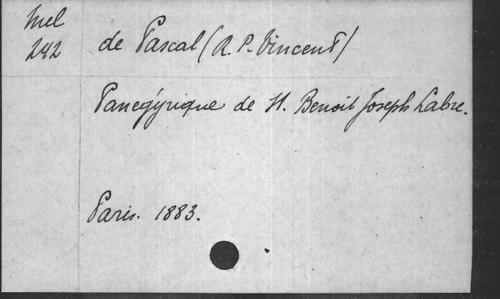 Mel
242
de Pascal (R. P. Vincent)
Panegyrique de St. Benoit Joseph Labre.
Paris. 1883.